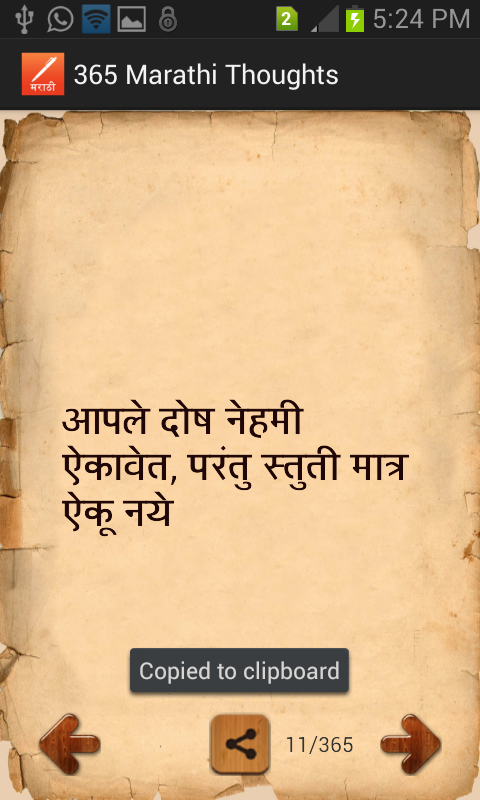 2 5:24 PM
मराठी 365 Marathi Thoughts
आपले दोष नेहमी
ऐकावेत, परंतु स्तुती मात्र
ऐकू नये
Copied to clipboard
11/365